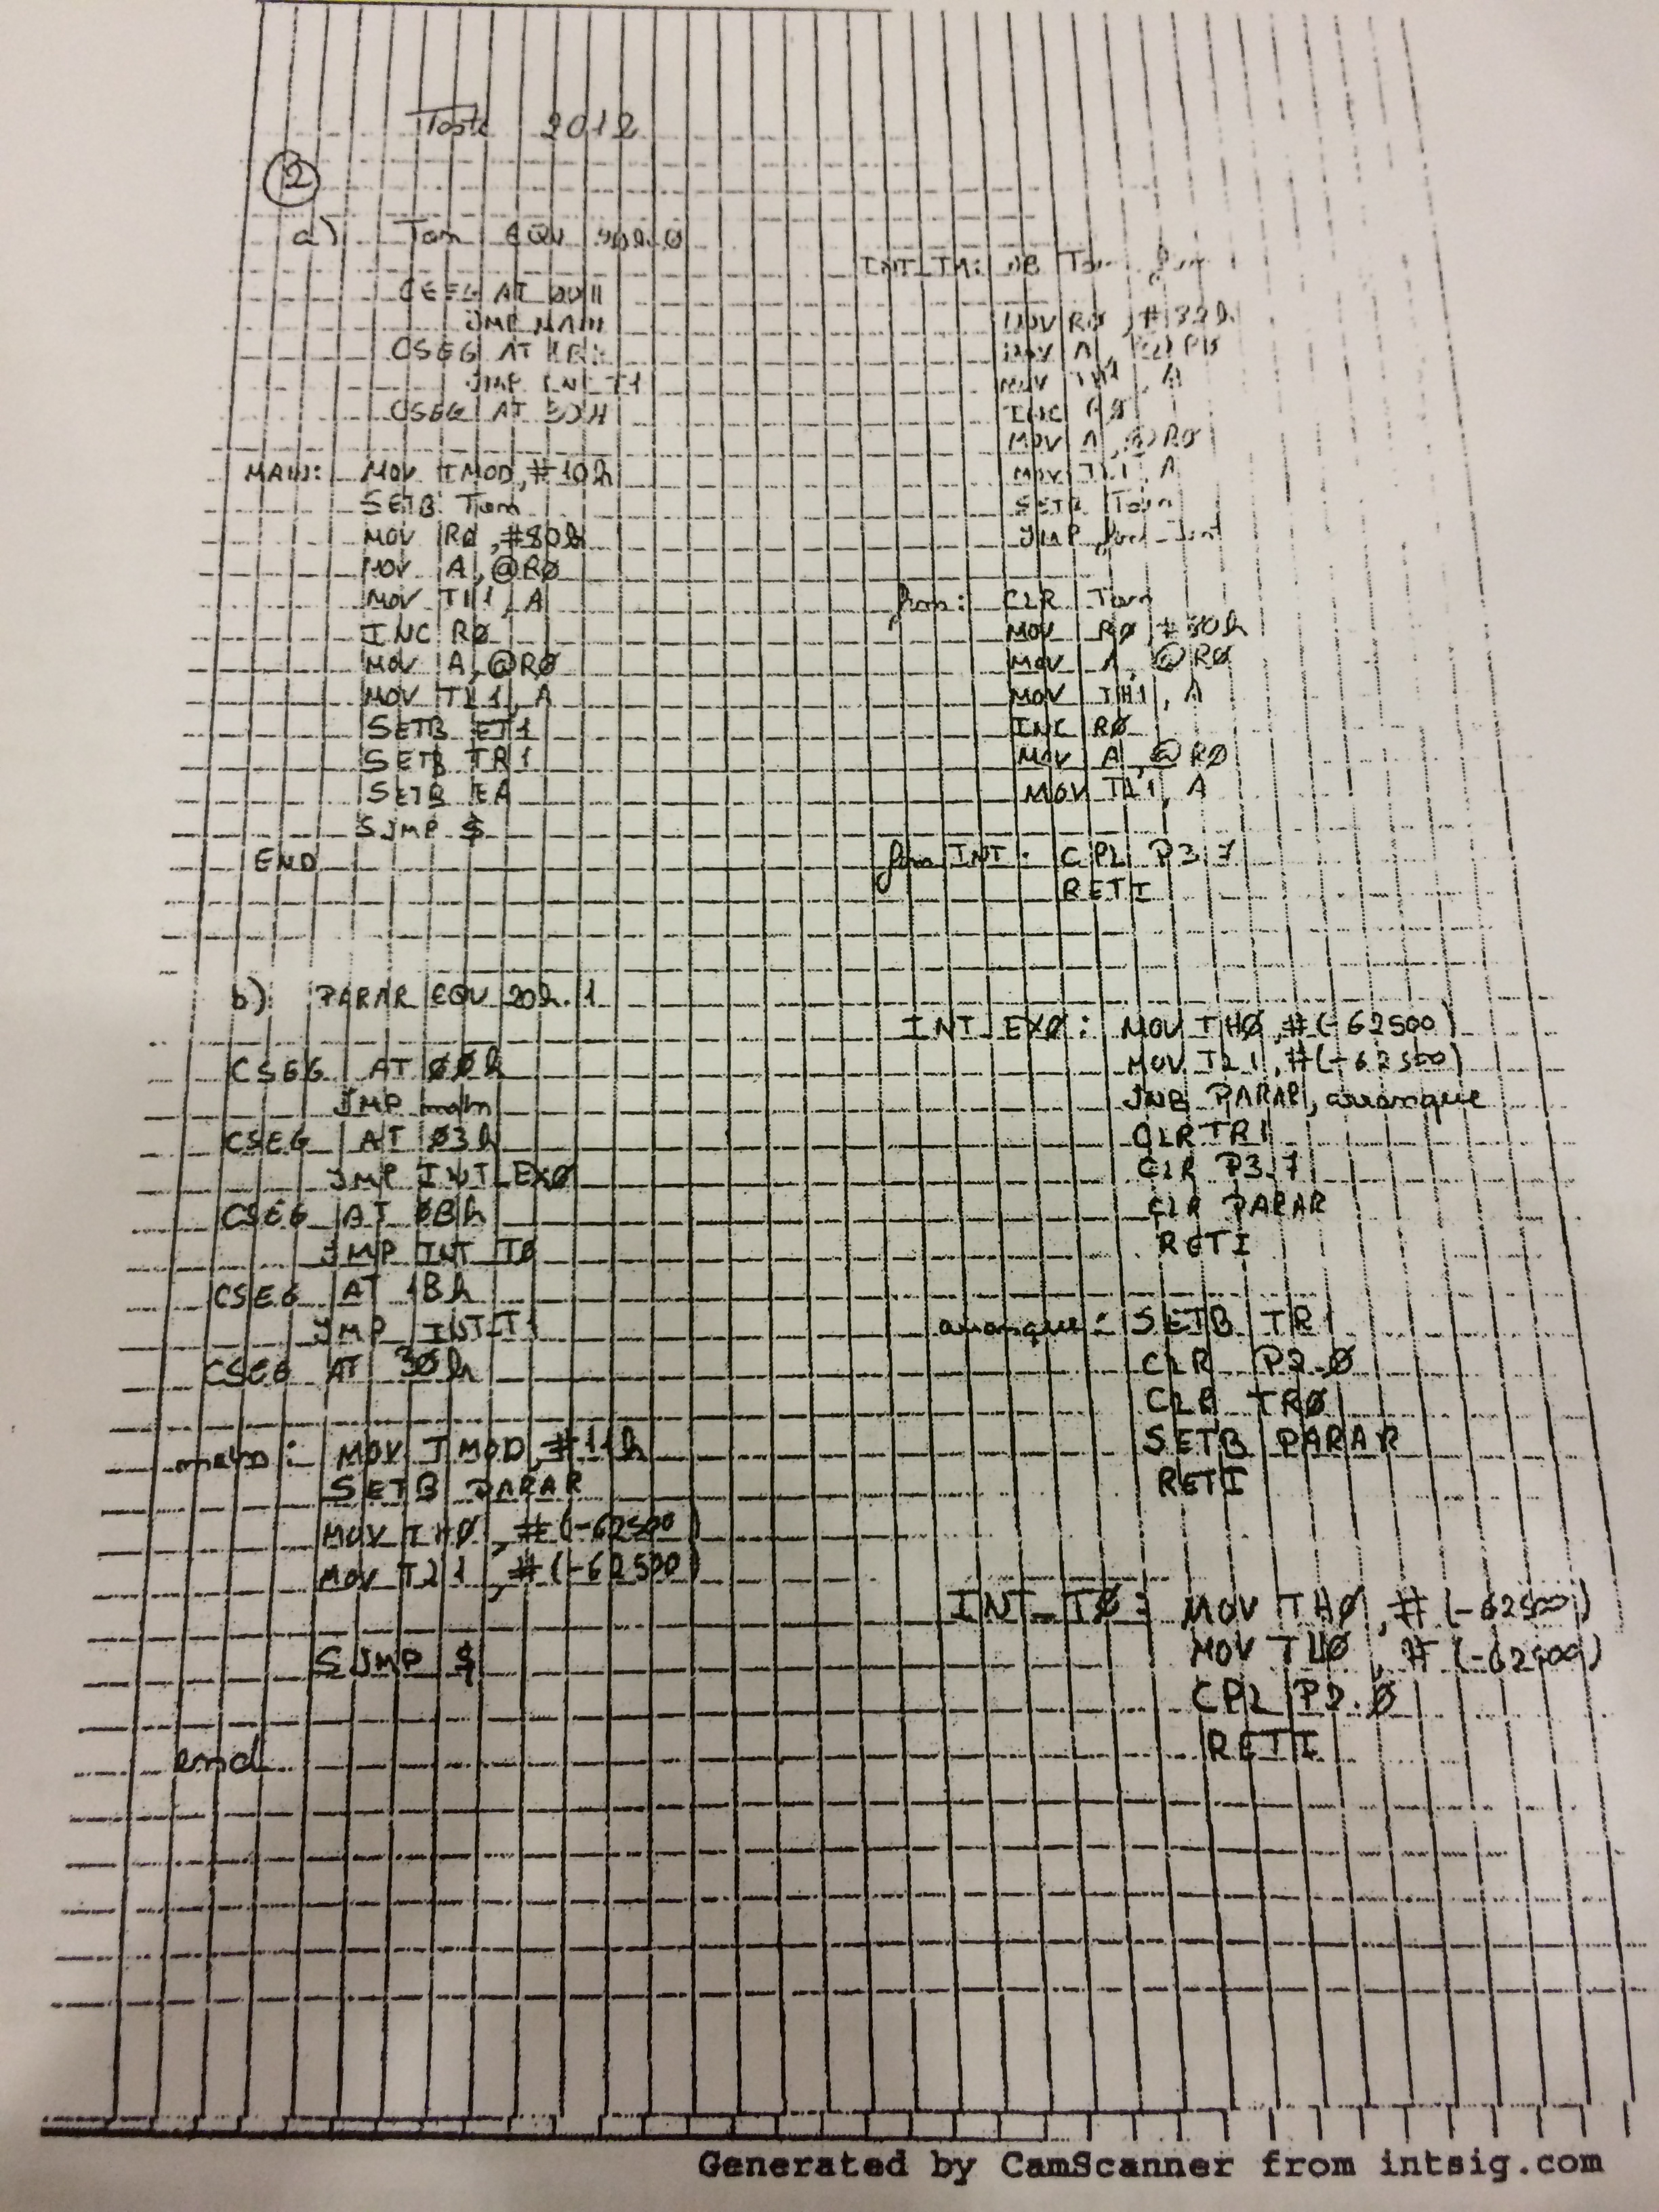 Teste 2012
2
a) Tom EQU
CSEG AT 00H
JMP MAIN
CSEG AT 1BH
JMP INT_T1
CSEG AT 30H
MAIN: MOV TMOD, #10h
SETB Tom
MOV RØ, #80h
MOV A, @RØ
MOV TH1, A
INC RØ
MOV A, @RØ
MOV TL1, A
SETB ET1
SETB TR1
SETB EA
SJMP $
END
INT_T1: JB Tom,
MOV RØ, #32h
MOV A, @RØ
MOV TH1, A
INC RØ
MOV A, @RØ
MOV TL1, A
SETB Tom
JMP
CLR Tom
MOV RØ, #30h
MOV A, @RØ
MOV TH1, A
INC RØ
MOV A, @RØ
MOV TL1, A
fim INT: CPL P3.7
RETI
b) PARAR EQU 20h.1
CSEG AT ØØh
JMP main
CSEG AT Ø3h
JMP INT_EXØ
CSEG AT ØBh
JMP INT TØ
CSEG AT 1Bh
JMP INT_T1
CSEG AT 3Øh
main: MOV TMOD, #11h
SETB PARAR
MOV THØ, #(-62500)
MOV TL1, #(-62500)
SJMP $
end
INT_EXØ: MOV THØ, #(-62500)
MOV TL1, #(-62500)
JNB PARAR, arranque
CLR TR1
CLR P3.7
CLR PARAR
RETI
arranque: SETB TR1
CLR P2.Ø
CLR TRØ
SETB PARAR
RETI
INT_TØ: MOV THØ, #(-62500)
MOV TLØ, #(-62500)
CPL P2.Ø
RETI
Generated by CamScanner from intsig.com